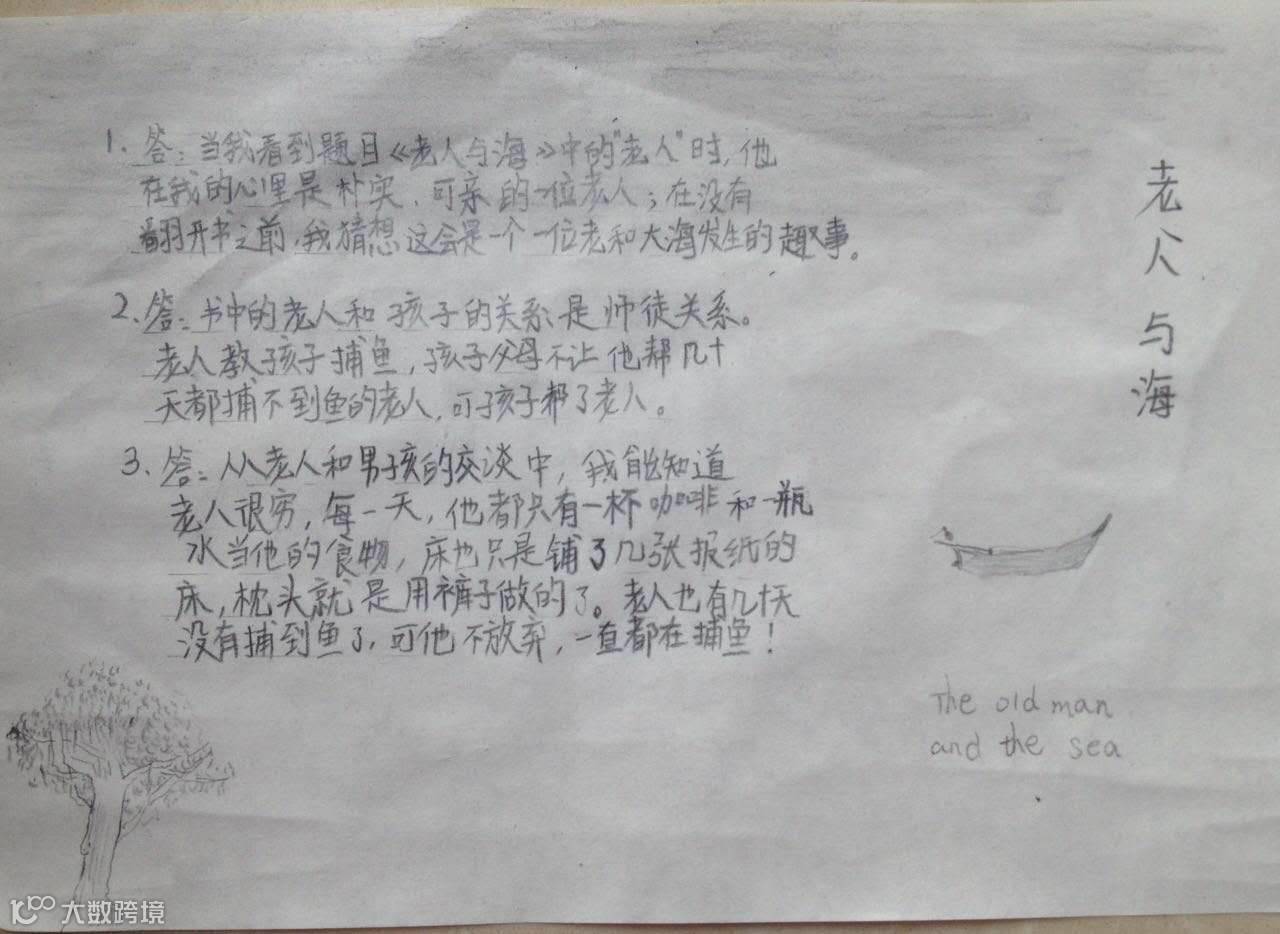 1. 答：当我看到题目《老人与海》中的"老人"时，他
在我的心里是朴实、可亲的一位老人；在没有
翻开书之前，我猜想这会是一个一位老和大海发生的趣事。
2. 答：书中的老人和孩子的关系是师徒关系。
老人教孩子捕鱼，孩子父母不让他帮几十
天都捕不到鱼的老人，可孩子帮了老人。
3. 答：从老人和男孩的交谈中，我能知道
老人很穷，每一天，他都只有一杯咖啡和一瓶
水当他的食物，床也只是铺了几张报纸的
床，枕头就是用裤子做的了。老人也有几十天
没有捕到鱼了，可他不放弃，一直都在捕鱼！
老人与海
The old man
and the sea
大数跨境